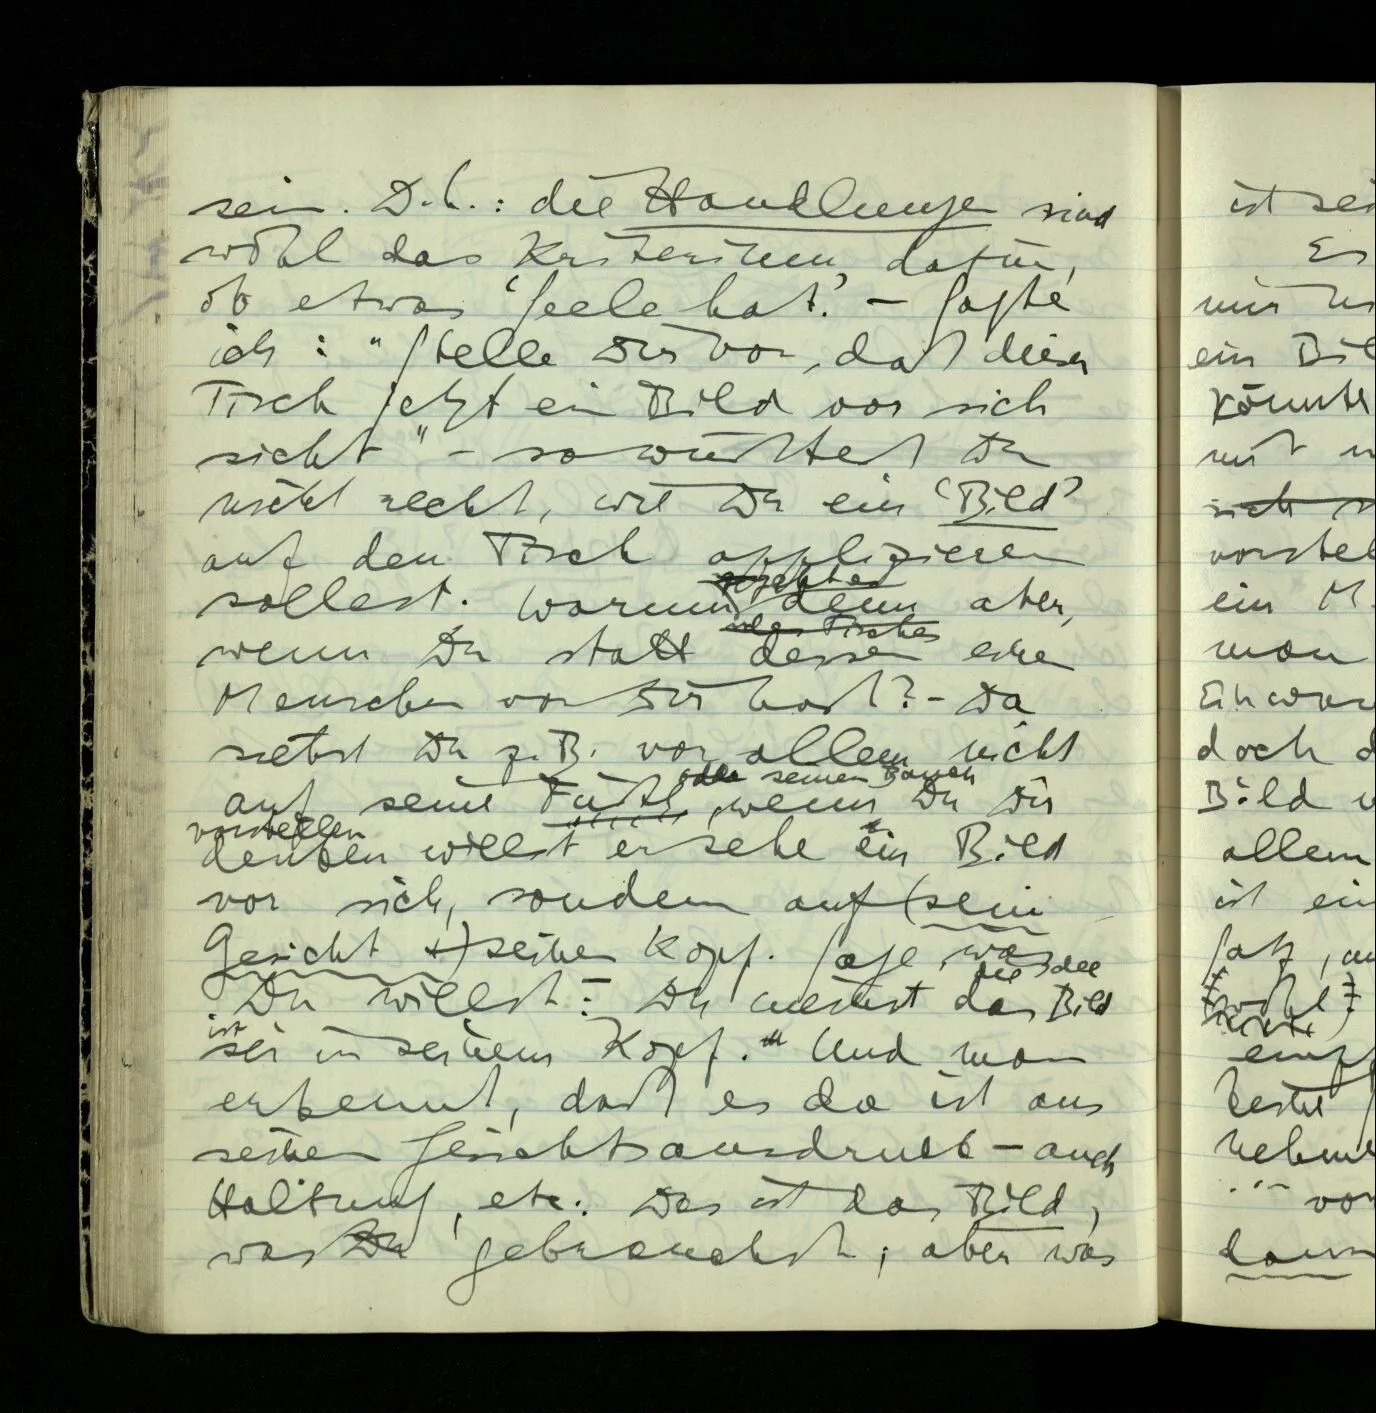 sein. D.h.: die Handlungen sind
wohl das Kriterium dafür,
ob etwas ‘Seele hat’. – Sagte
ich: "Stelle Dir vor, daß dieser
Tisch jetzt ein Bild vor sich
sieht" – so wüßtest Du
nicht recht, wie Du ein ‘Bild’
auf den Tisch applizieren
sollest. Warum denn aber,
des Tisches
wenn Du statt dessen einen
Menschen vor Dir hast? – Da
siehst Du z.B. vor allem nicht
oder seinen Bauch
auf seine Füße, wenn Du Dir
vorstellen
denken willst er sehe ein Bild
vor sich, sondern auf (sein
Gesicht +) seinen Kopf. Sage, was
die
Du willst: Du meinst das Bild
ist
sei in seinem Kopf." Und man
erkennt, daß es da ist aus
seinem Gesichtsausdruck – auch
Haltung, etc. Das ist das Bild,
was Du gebrauchst; aber was
ist
Es
mir
ein
könnte
mit
sich
ein M
man
doch
Bild
allem
ist ein
Satz,
wohl
vor
dann